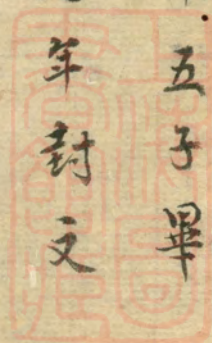 五子畢
年封文